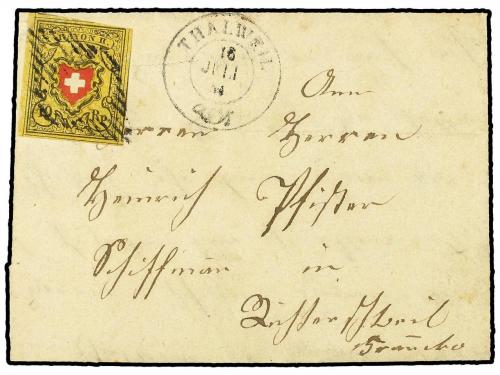 RAYON II
10 Rp.
THALWEIL
16
JULI
An
Herren Herren
Heinrich Pfister
Schiffman in
Richterschweil
Franco